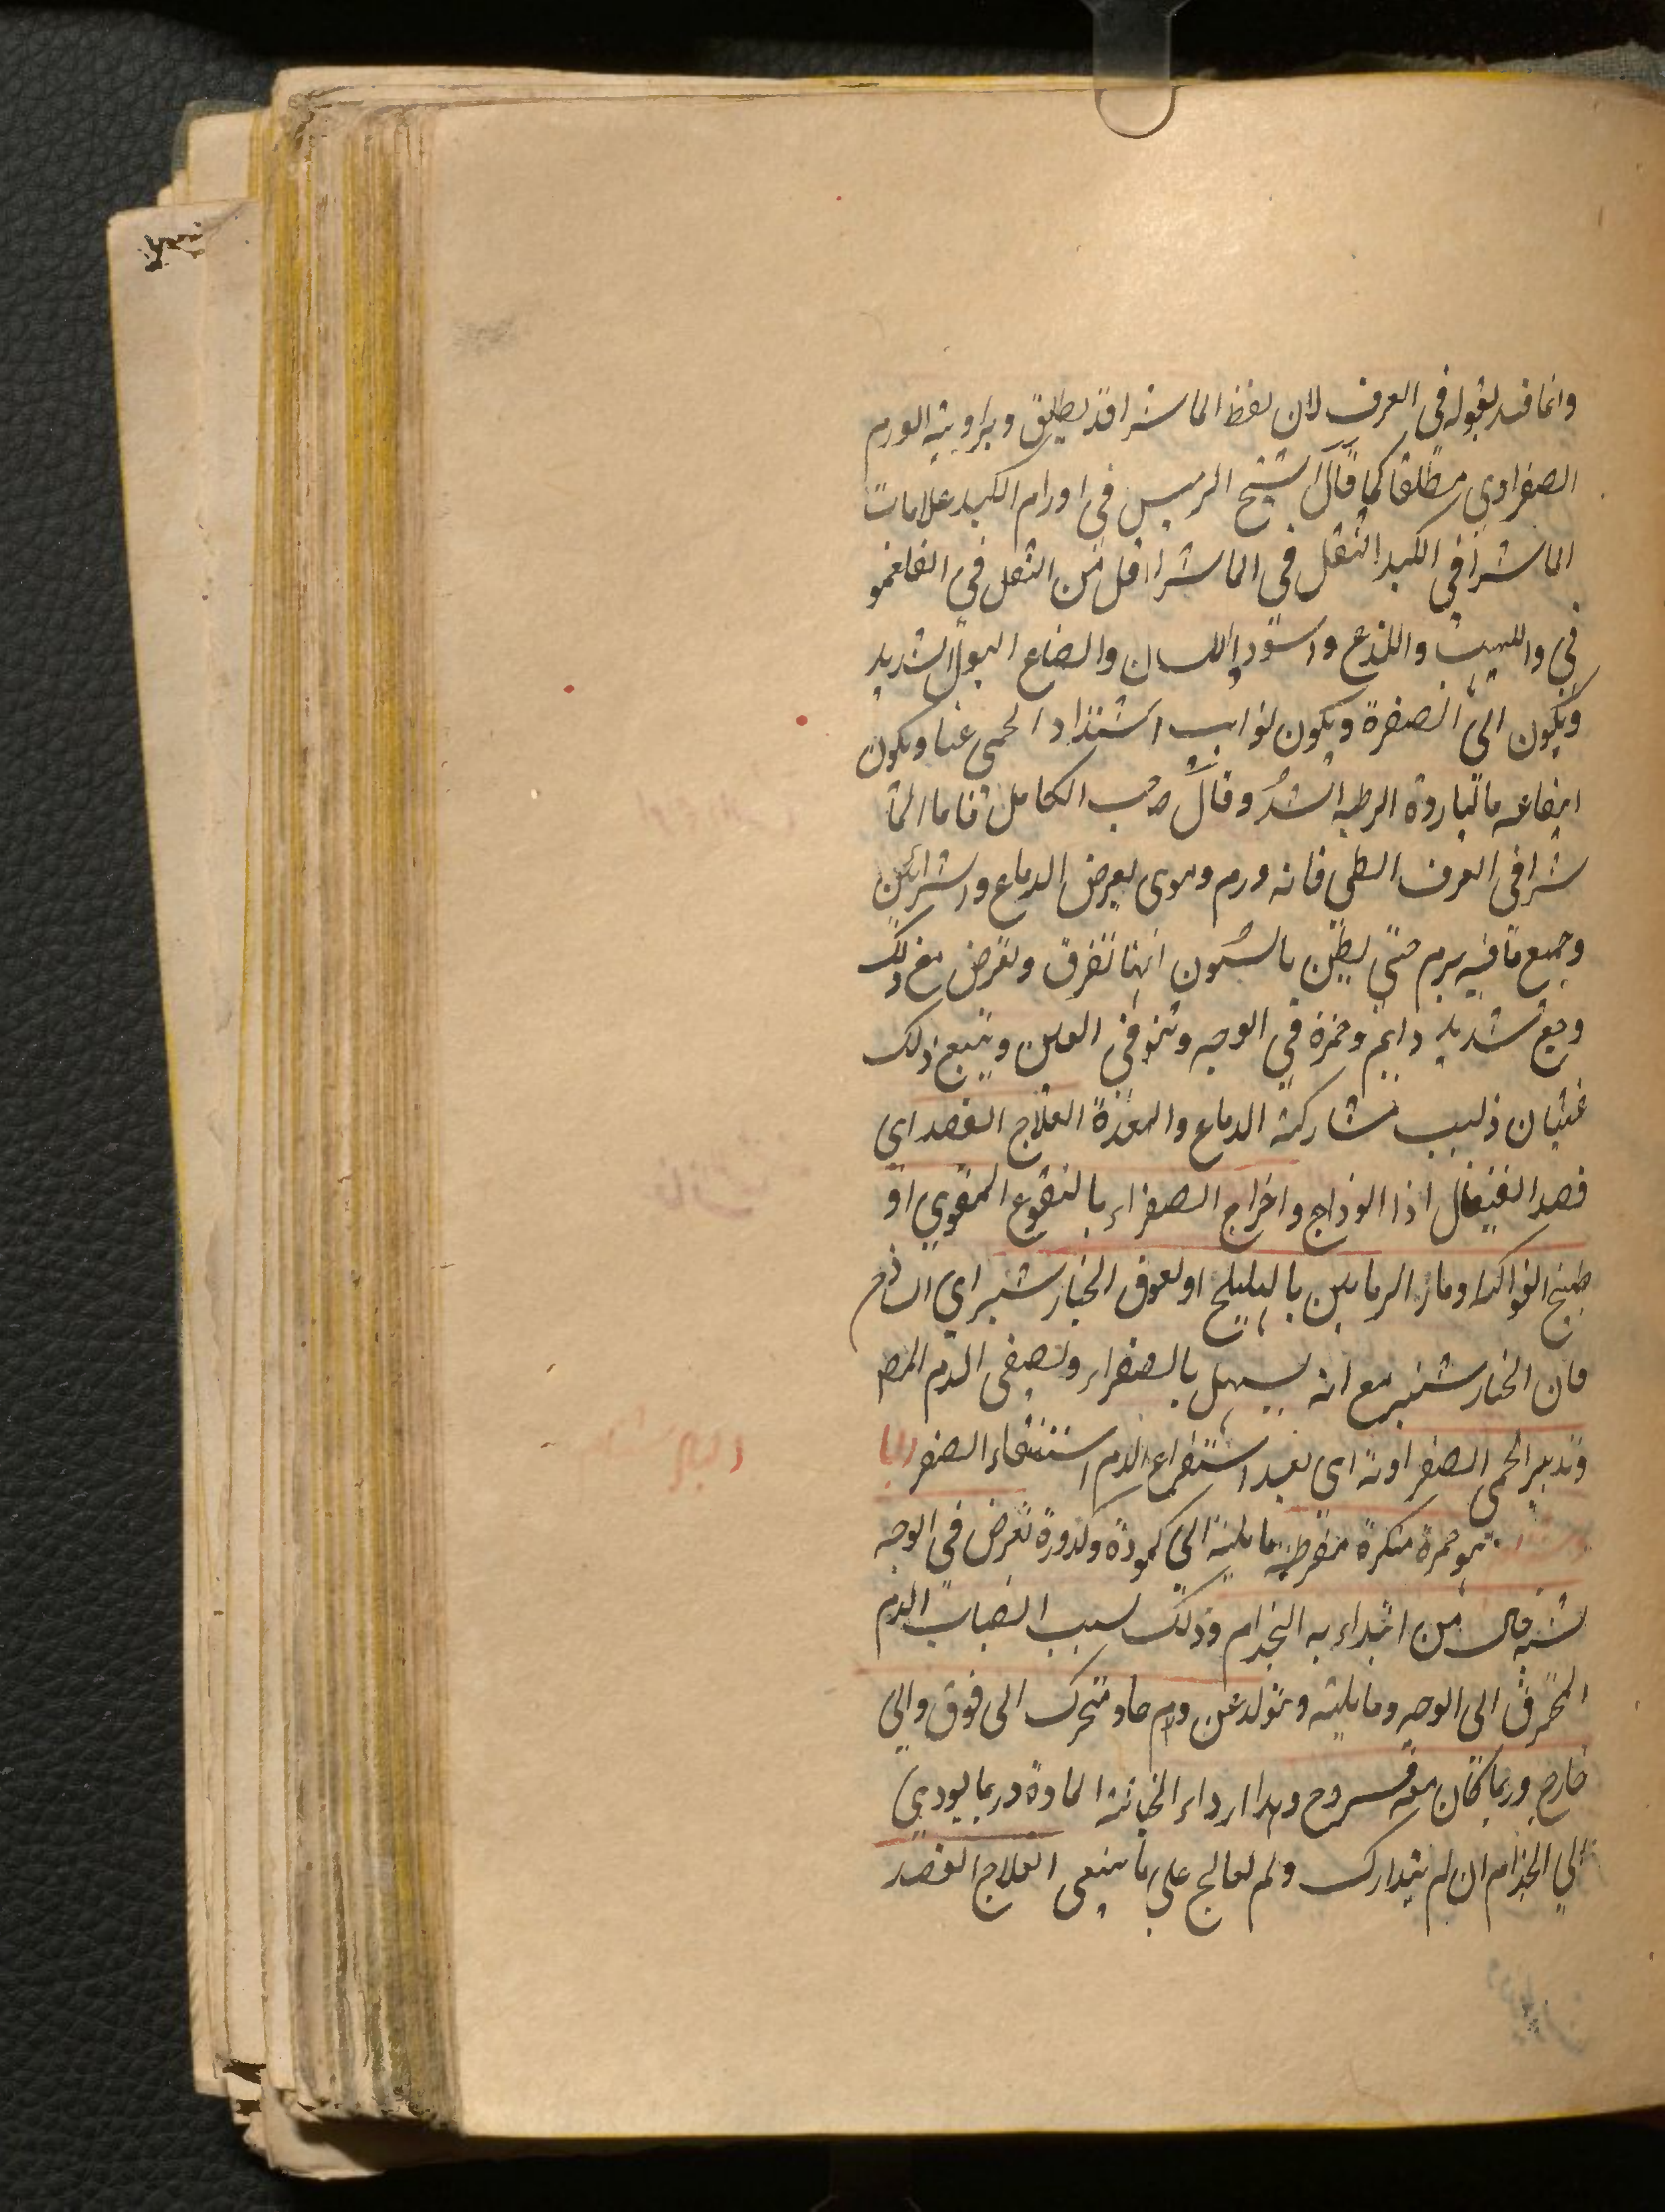 وانما قید بقوله فی العرف لان لفظ الماشرا قد یطلق ویراد به الورم
الصفراوی مطلقا کما قال الشیخ الرئیس فی اورام الکبد علامات
الماشرا فی الکبد الثقل فی الماشرا اقل من الثقل فی الفلغمو
فی واللهیب واللذع واسوداد اللسان والصباغ البول الشدید
ویکون الی الصفرة ویکون نوایب اشتداد الحمی غبا ویکون
انتفاعه بالباردة الرطبة اشد وقال صاحب الکامل فاما الما
شرا فی العرف الطبی فانه ورم دموی یعرض الدماغ والشرائین
وجمیع ما فیه یرم حتی یظن بالشئون انها تفرق وتعرض مع ذلک
وجع شدید دایم وحمرة فی الوجه ونتو فی العین ویتبع ذلک
غثیان بسبب مشارکة الدماغ والمعدة العلاج الفصد ای
فصد القیفال اذا الوداج واخراج الصفراء بالنقوع المقوی او
طبیخ الفواکه او ماء الرمانین بالهلیلج او لعوق الخیار شنبر ای
فان الخیار شنبر مع انه یسهل بالصفراء ویصفی الدم
وتدبیر الحمی الصفراویة ای بعد استفراغ الدم استنقاء الصفر
هو حمرة منکرة مفرطة مایلة الی کمودة وکدورة تعرض فی الوجه
یشبه حال من ابتداء به الجذام وذلک بسبب انصباب الدم
المحرق الی الوجه وما یلیه ویتولد عن دم حاد متحرک الی فوق والی
خارج وربما کان معه قروح وهذا ارداء لخباثة المادة وربما یودی
الی الجذام ان لم یتدارک ولم یعالج علی ما ینبغی العلاج الفصد